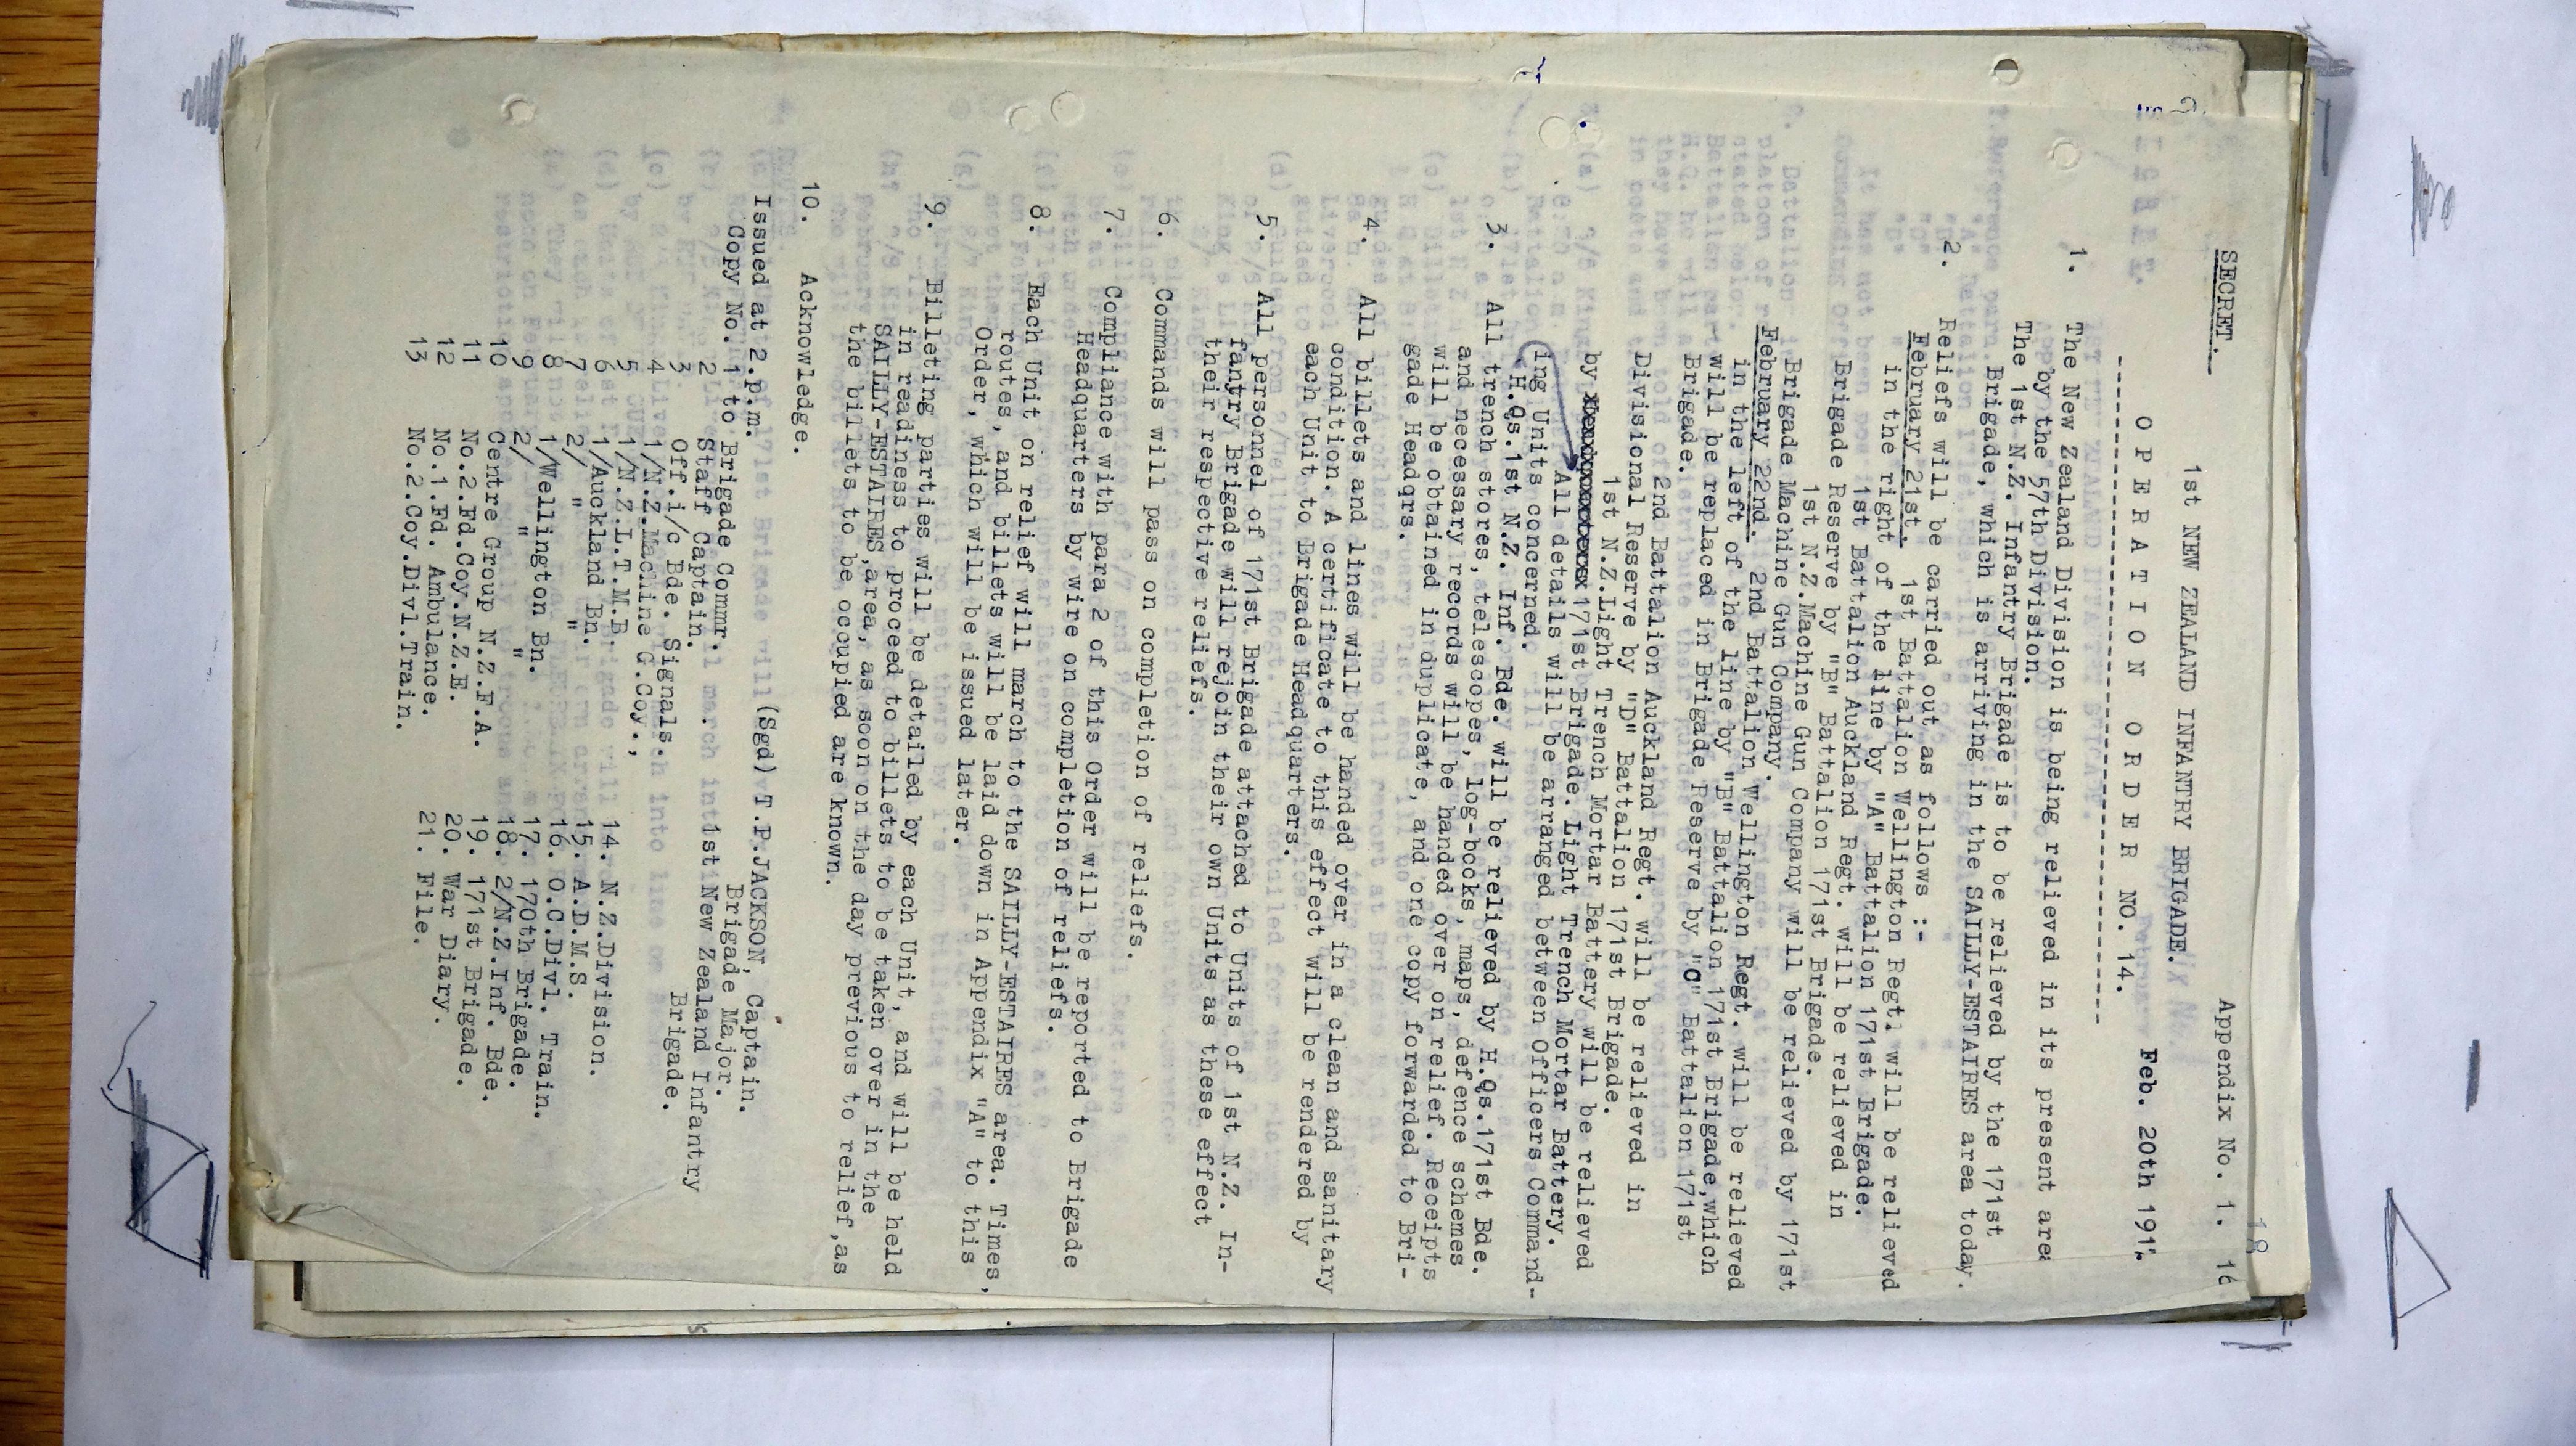 18
SECRET.
Appendix No. 1. 16
1st NEW ZEALAND INFANTRY BRIGADE.
Feb. 20th 1917.
OPERATION ORDER NO. 14.
1. The New Zealand Division is being relieved in its present area
by the 57th Division.
The 1st N.Z. Infantry Brigade is to be relieved by the 171st
Brigade, which is arriving in the SAILLY-ESTAIRES area today.
2. Reliefs will be carried out as follows :-
February 21st. 1st Battalion Wellington Regt. will be relieved
in the right of the line by "A" Battalion 171st Brigade.
1st Battalion Auckland Regt. will be relieved in
Brigade Reserve by "B" Battalion 171st Brigade.
1st N.Z.Machine Gun Company will be relieved by 171st
Brigade Machine Gun Company.
February 22nd. 2nd Battalion Wellington Regt. will be relieved
in the left of the line by "B" Battalion 171st Brigade,which
will be replaced in Brigade Reserve by "C" Battalion 171st
Brigade.
2nd Battalion Auckland Regt. will be relieved in
Divisional Reserve by "D" Battalion 171st Brigade.
1st N.Z.Light Trench Mortar Battery will be relieved
by 171st Brigade. Light Trench Mortar Battery.
All details will be arranged between Officers Command-
ing Units concerned.
H.Qs.1st N.Z. Inf. Bde. will be relieved by H.Qs.171st Bde.
3. All trench stores, telescopes, log-books, maps, defence schemes
and necessary records will be handed over on relief. Receipts
will be obtained in duplicate, and one copy forwarded to Bri-
gade Headqrs.
4. All billets and lines will be handed over in a clean and sanitary
condition. A certificate to this effect will be rendered by
each Unit to Brigade Headquarters.
5. All personnel of 171st Brigade attached to Units of 1st N.Z. In-
fantry Brigade will rejoin their own Units as these effect
their respective reliefs.
6. Commands will pass on completion of reliefs.
7. Compliance with para 2 of this Order will be reported to Brigade
Headquarters by wire on completion of reliefs.
8. Each Unit on relief will march to the SAILLY-ESTAIRES area. Times,
routes, and billets will be laid down in Appendix "A" to this
Order, which will be issued later.
9. Billeting parties will be detailed by each Unit, and will be held
in readiness to proceed to billets to be taken over in the
SAILLY-ESTAIRES,area, as soon on the day previous to relief,as
the billets to be occupied are known.
10. Acknowledge.
(Sgd) T.P.JACKSON, Captain.
Brigade Major.
1st New Zealand Infantry
Brigade.
Issued at 2.p.m.
Copy No. 1 to Brigade Commr.
2 Staff Captain.
3 Off.i/c Bde. Signals.
4 1/N.Z.Machine G.Coy.,
5 1/N.Z.L.T.M.B. 14. N.Z.Division.
6 1/Auckland Bn. 15. A.D.M.S.
7 2/ " " 16. O.C.Divl. Train.
8 1/Wellington Bn. 17. 170th Brigade.
9 2/ " " 18. 2/N.Z.Inf. Bde.
10 Centre Group N.Z.F.A. 19. 171st Brigade.
11 No.2.Fd.Coy.N.Z.E. 20. War Diary.
12 No.1.Fd. Ambulance. 21. File.
13 No.2.Coy.Divl.Train.